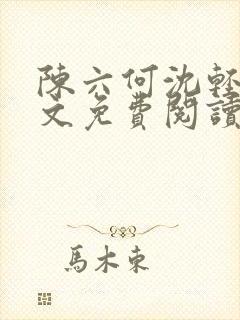 陳六何沈輕
文免費閱讀
馬木東